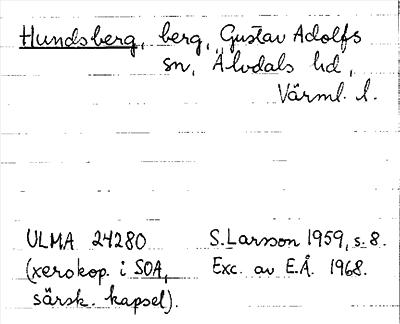 Hundsberg, berg, Gustav Adolfs
sn, Älvdals hd,
Värml. l.
ULMA 24280 S. Larsson 1959, s. 8.
(xerokop. i SOA, Exc. av E.Å. 1968.
särsk. kapsel).